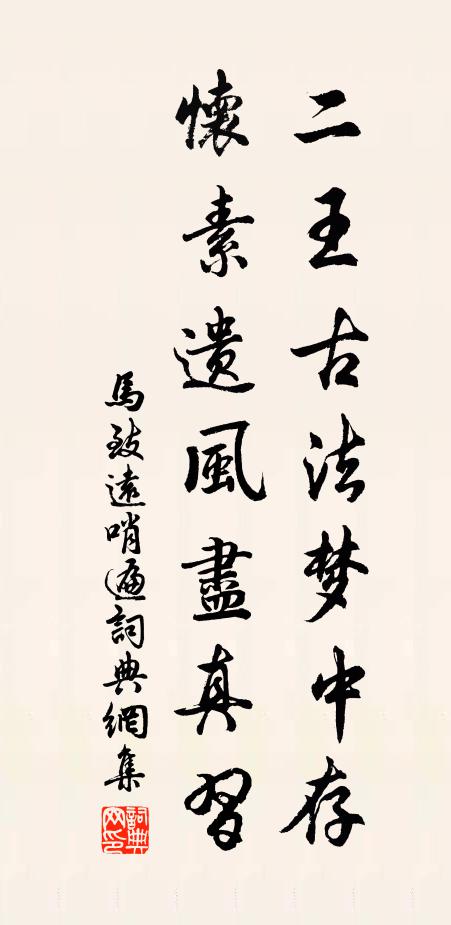 二王古法梦中存
懷素遺風盡真習
馬致遠哨遍詞典網集
詞典网印